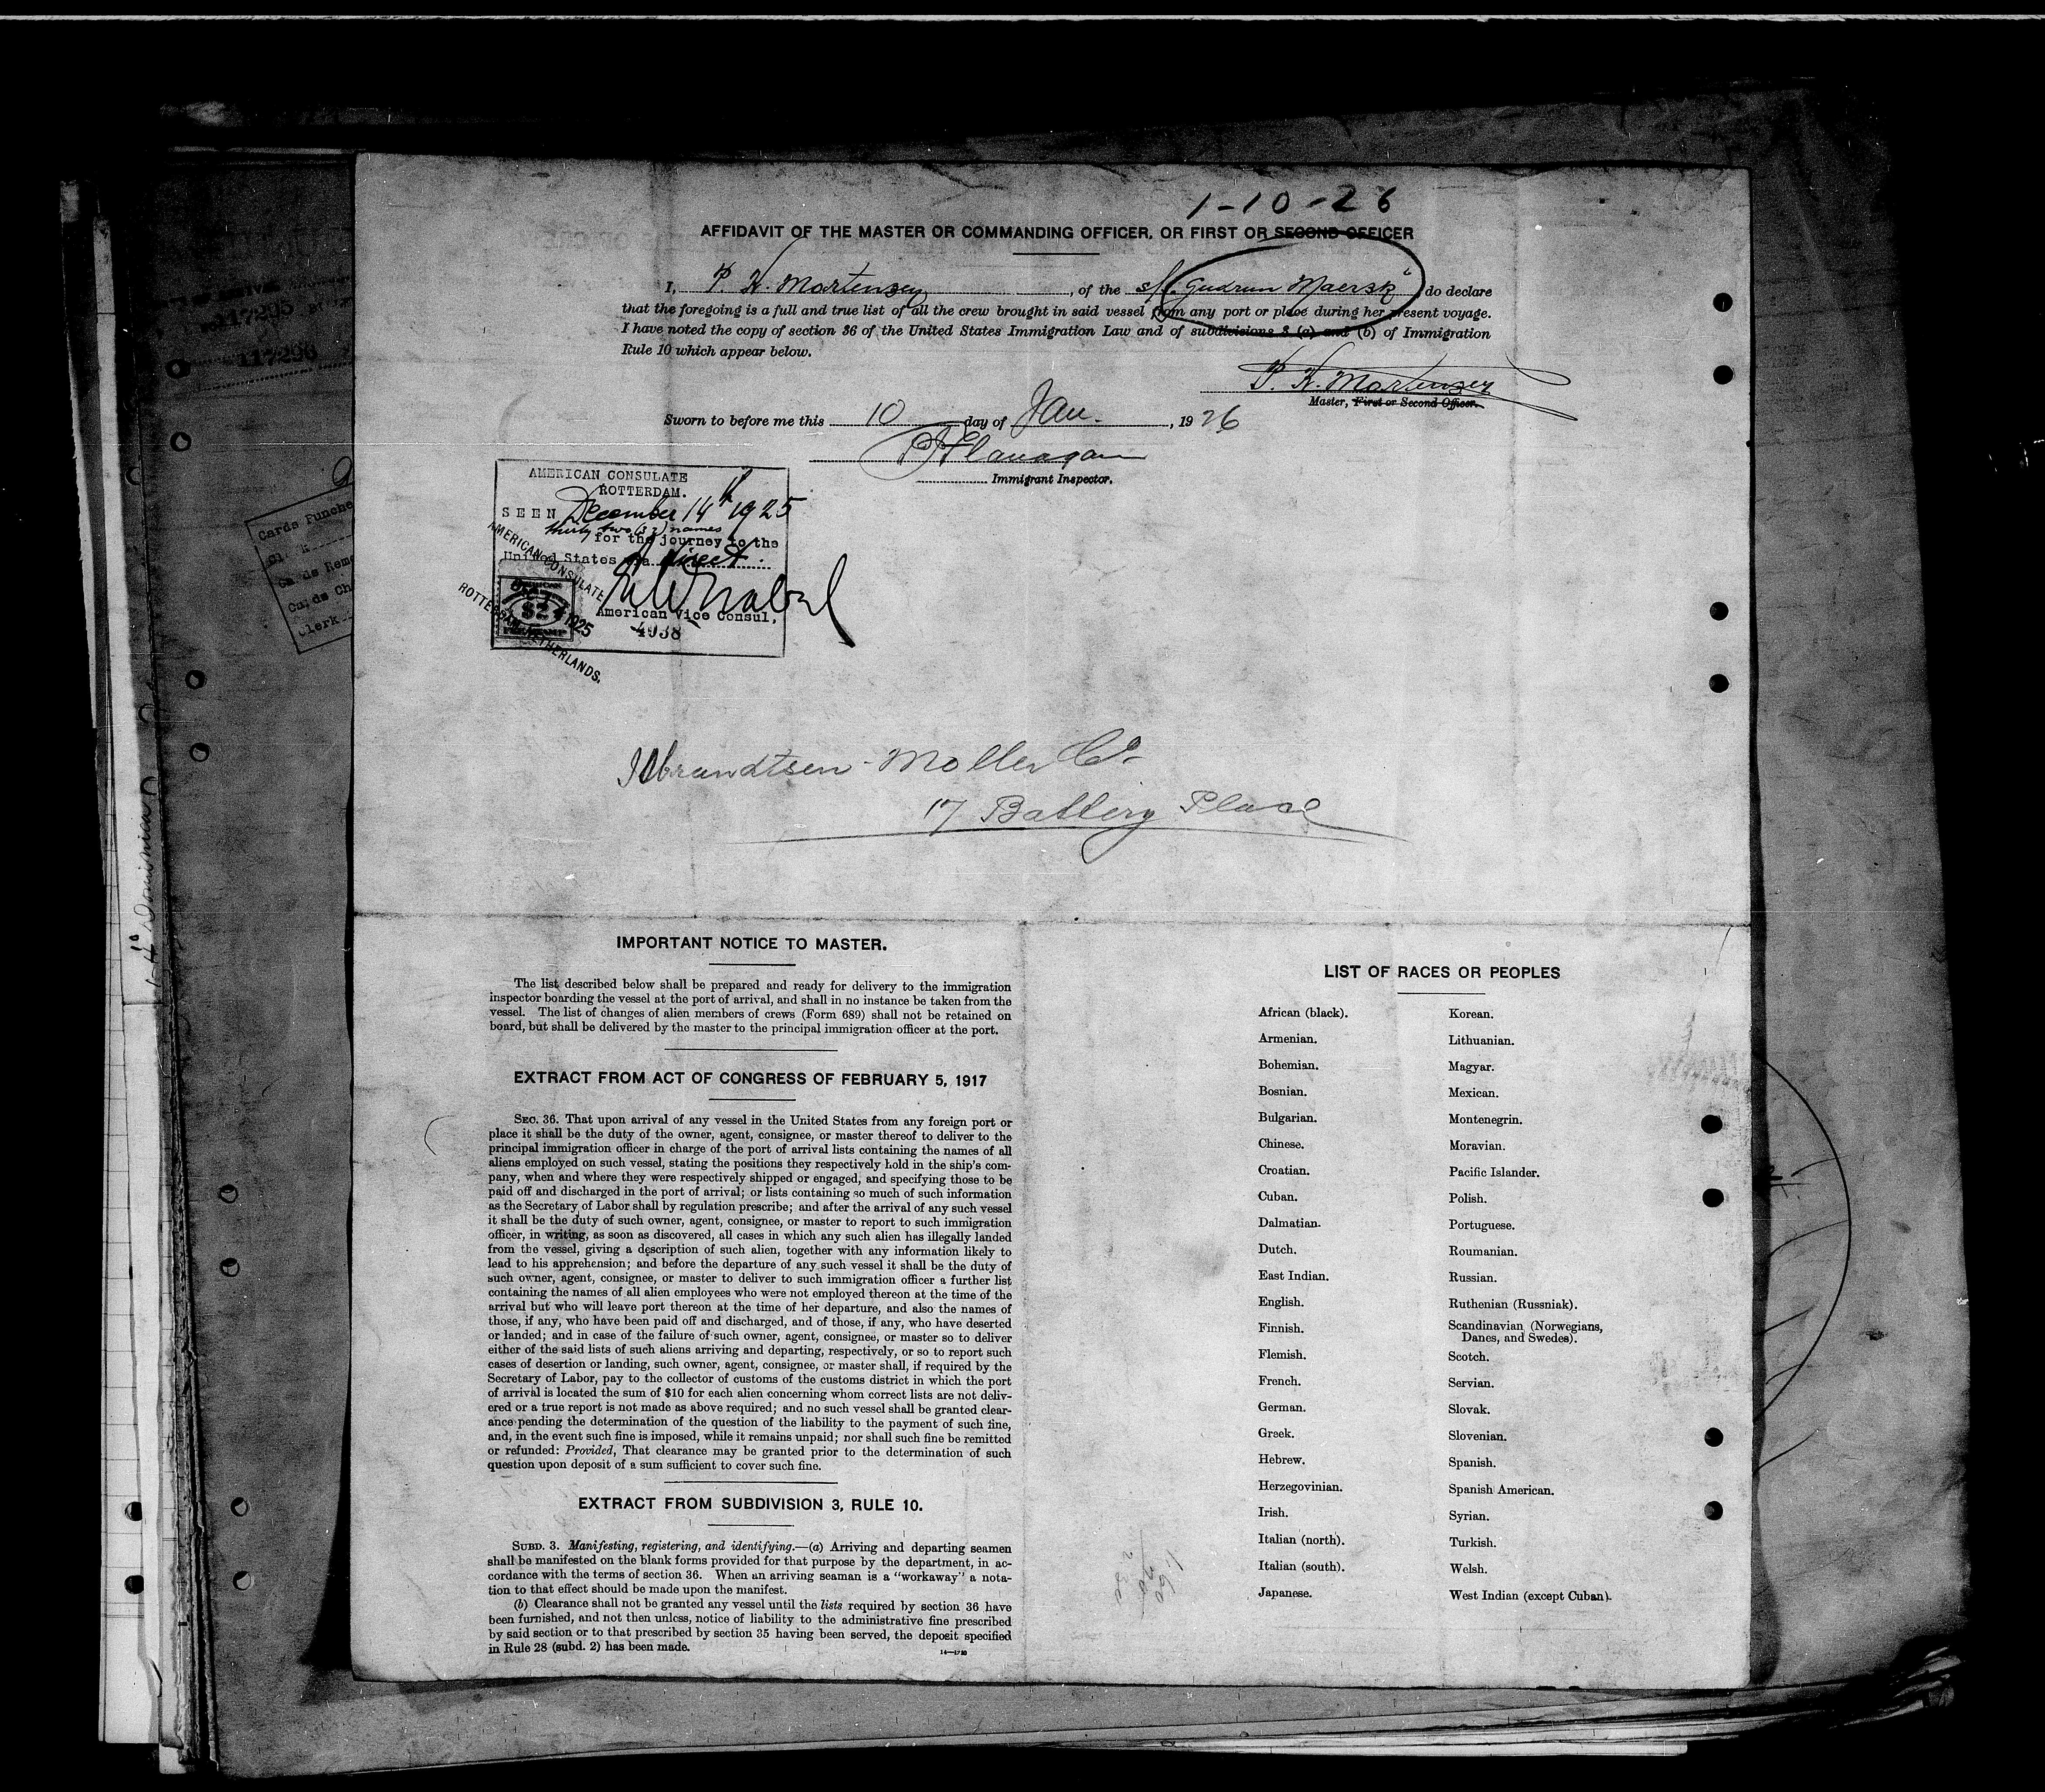 1-10-26
AFFIDAVIT OF THE MASTER OR COMMANDING OFFICER, OR FIRST OR SECOND OFFICER
I, P. K. Mortensen, of the s/s. "Gudrun Maersk" do declare
that the foregoing is a full and true list of all the crew brought in said vessel from any port or place during her present voyage.
I have noted the copy of section 36 of the United States Immigration Law and of subdivisions 3 (a) and (b) of Immigration
Rule 10 which appear below.
P. K. Mortensen
Master, First or Second Officer.
Sworn to before me this 10 day of Jan., 1926
Flanagan
Immigrant Inspector.
AMERICAN CONSULATE
ROTTERDAM.
SEEN December 14th 1925
thirty two (32) names
for the journey to the
United States via direct.
American Vice Consul,
4938
AMERICAN CONSULATE
ROTTERDAM, NETHERLANDS.
1925
$2
117295
117296
Cards Punche
Clerk
Isbrandtsen-Moller Co.
17 Battery Place
IMPORTANT NOTICE TO MASTER.
The list described below shall be prepared and ready for delivery to the immigration
inspector boarding the vessel at the port of arrival, and shall in no instance be taken from the
vessel. The list of changes of alien members of crews (Form 689) shall not be retained on
board, but shall be delivered by the master to the principal immigration officer at the port.
EXTRACT FROM ACT OF CONGRESS OF FEBRUARY 5, 1917
SEC. 36. That upon arrival of any vessel in the United States from any foreign port or
place it shall be the duty of the owner, agent, consignee, or master thereof to deliver to the
principal immigration officer in charge of the port of arrival lists containing the names of all
aliens employed on such vessel, stating the positions they respectively hold in the ship's com-
pany, when and where they were respectively shipped or engaged, and specifying those to be
paid off and discharged in the port of arrival; or lists containing so much of such information
as the Secretary of Labor shall by regulation prescribe; and after the arrival of any such vessel
it shall be the duty of such owner, agent, consignee, or master to report to such immigration
officer, in writing, as soon as discovered, all cases in which any such alien has illegally landed
from the vessel, giving a description of such alien, together with any information likely to
lead to his apprehension; and before the departure of any such vessel it shall be the duty of
such owner, agent, consignee, or master to deliver to such immigration officer a further list
containing the names of all alien employees who were not employed thereon at the time of the
arrival but who will leave port thereon at the time of her departure, and also the names of
those, if any, who have been paid off and discharged, and of those, if any, who have deserted
or landed; and in case of the failure of such owner, agent, consignee, or master so to deliver
either of the said lists of such aliens arriving and departing, respectively, or so to report such
cases of desertion or landing, such owner, agent, consignee, or master shall, if required by the
Secretary of Labor, pay to the collector of customs of the customs district in which the port
of arrival is located the sum of $10 for each alien concerning whom correct lists are not deliv-
ered or a true report is not made as above required; and no such vessel shall be granted clear-
ance pending the determination of the question of the liability to the payment of such fine,
and, in the event such fine is imposed, while it remains unpaid; nor shall such fine be remitted
or refunded: Provided, That clearance may be granted prior to the determination of such
question upon deposit of a sum sufficient to cover such fine.
EXTRACT FROM SUBDIVISION 3, RULE 10.
SUBD. 3. Manifesting, registering, and identifying.—(a) Arriving and departing seamen
shall be manifested on the blank forms provided for that purpose by the department, in ac-
cordance with the terms of section 36. When an arriving seaman is a "workaway" a nota-
tion to that effect should be made upon the manifest.
(b) Clearance shall not be granted any vessel until the lists required by section 36 have
been furnished, and not then unless, notice of liability to the administrative fine prescribed
by said section or to that prescribed by section 35 having been served, the deposit specified
in Rule 28 (subd. 2) has been made.
LIST OF RACES OR PEOPLES
African (black).
Armenian.
Bohemian.
Bosnian.
Bulgarian.
Chinese.
Croatian.
Cuban.
Dalmatian.
Dutch.
East Indian.
English.
Finnish.
Flemish.
French.
German.
Greek.
Hebrew.
Herzegovinian.
Irish.
Italian (north).
Italian (south).
Japanese.
Korean.
Lithuanian.
Magyar.
Mexican.
Montenegrin.
Moravian.
Pacific Islander.
Polish.
Portuguese.
Roumanian.
Russian.
Ruthenian (Russniak).
Scandinavian (Norwegians,
Danes, and Swedes).
Scotch.
Servian.
Slovak.
Slovenian.
Spanish.
Spanish American.
Syrian.
Turkish.
Welsh.
West Indian (except Cuban).